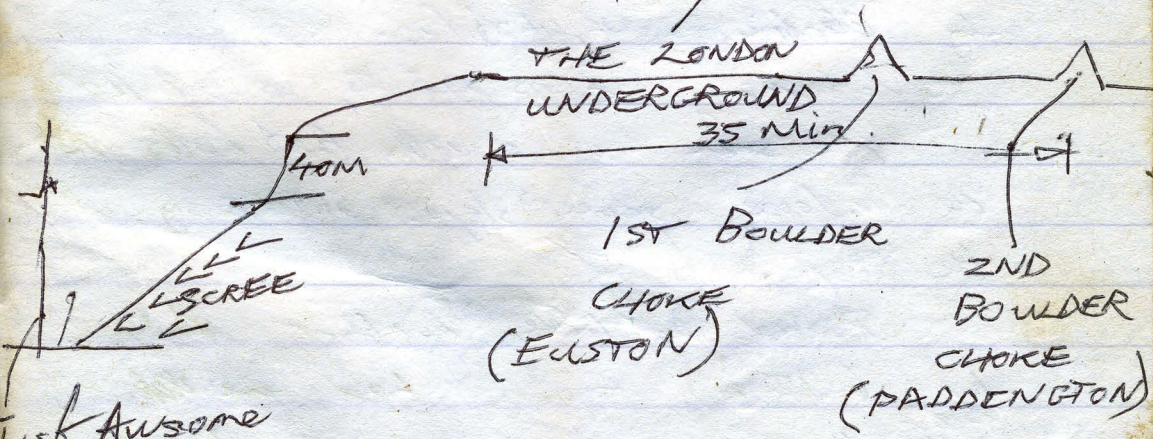 THE LONDON
UNDERGROUND
35 Min.
40M
SCREE
1ST BOULDER
CHOKE
(EUSTON)
2ND
BOULDER
CHOKE
(PADDENGTON)
Awsome